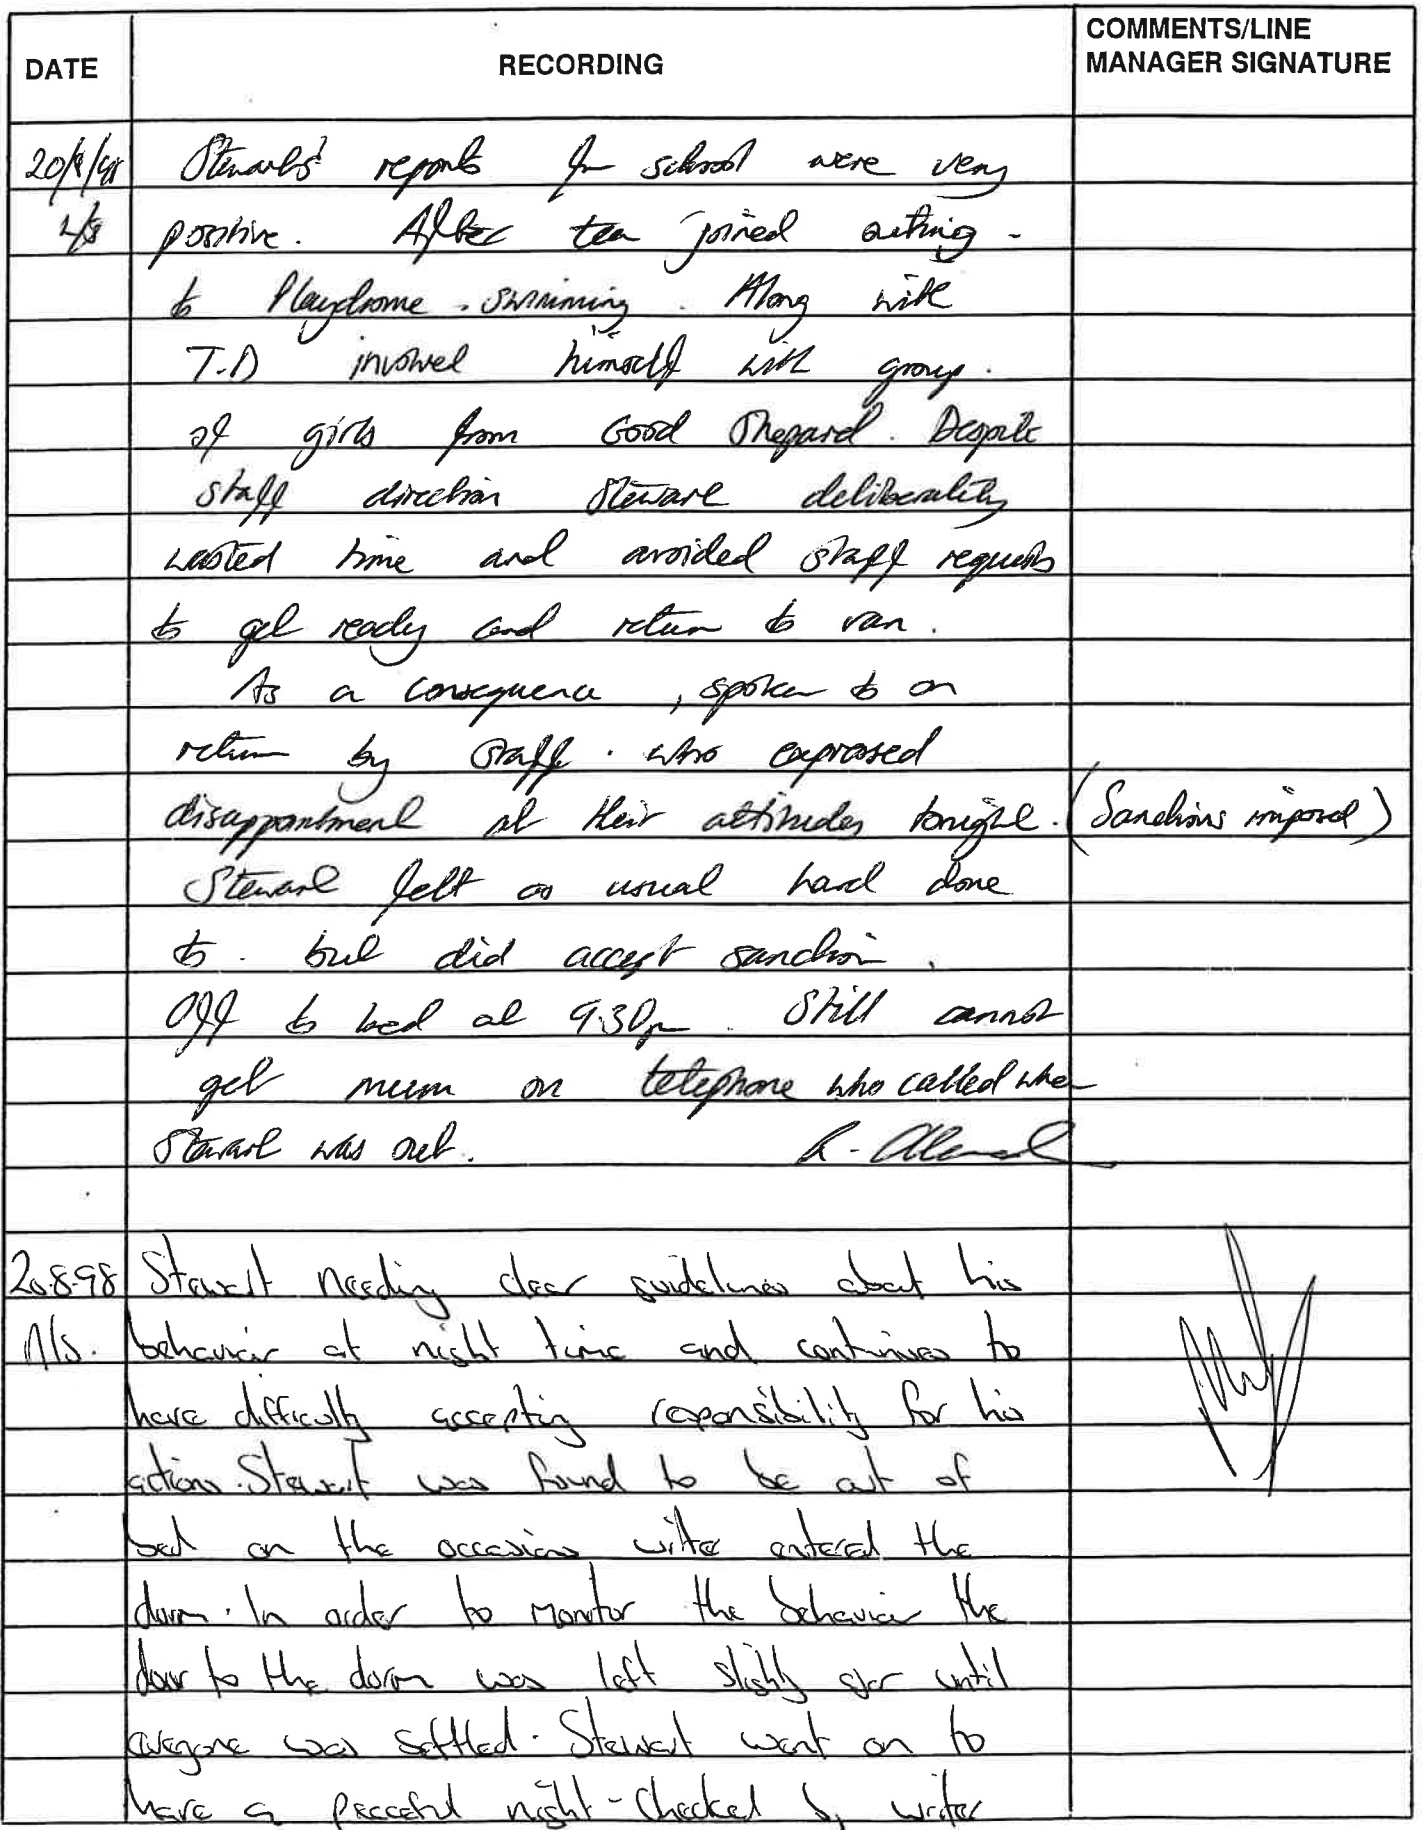 DATE
RECORDING
COMMENTS/LINE
MANAGER SIGNATURE
20/8/98 Stewart's reports for school were very
L/S positive. After tea joined outing -
to Playdrome - swimming. Along with
T.D involved himself with group.
of girls from Good Shepard. Despite
staff direction Stewart deliberality
wasted time and avoided staff requests
to get ready and return to van.
As a consequence, spoken to on
return by staff. who expressed
disappontment at their attitudes tonight. (Sanctions imposed)
Stewart felt as usual hard done
to. but did accept sanction.
Off to bed at 9.30pm. Still cannot
get mum on telephone who called when
Stewart was out. R.
20.8.98 Stewart needing clear guidelines about his
N/S. behavior at night time and continues to
have difficulty accepting responsibility for his
actions. Stewart was found to be out of
bed on the occasions writer entered the
dorm. In order to monitor the behavior the
door to the dorm was left slightly ajar until
everyone was settled. Stewart went on to
have a peaceful night - checked by writer